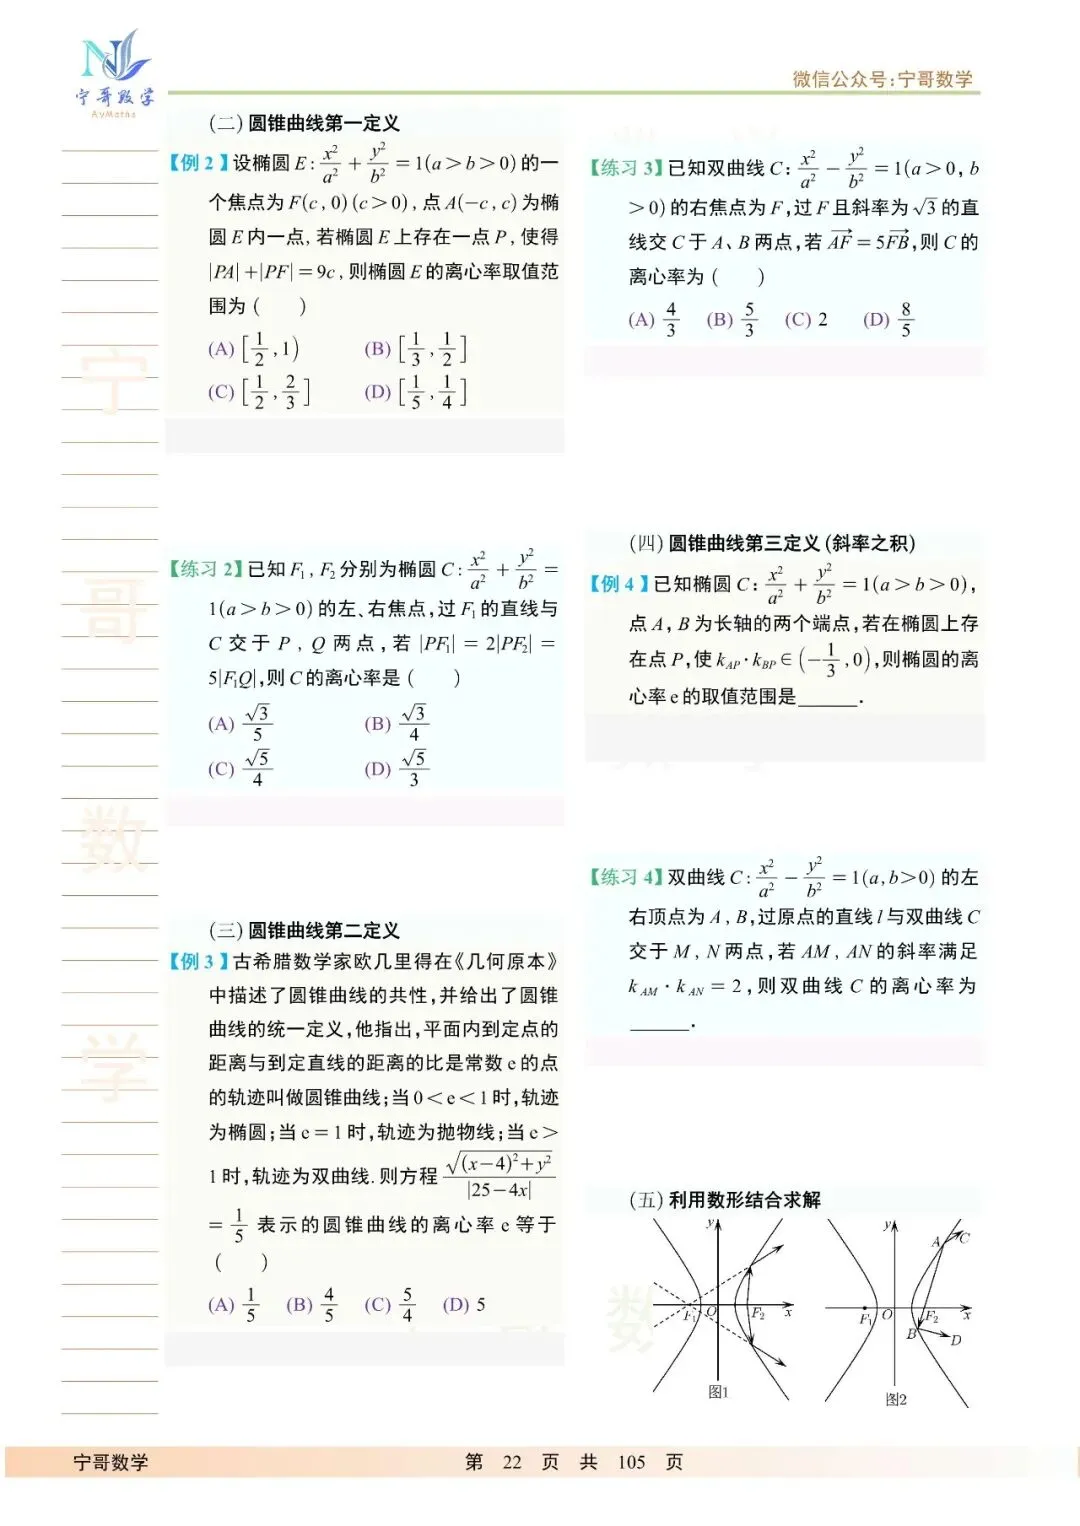 宁哥数学
AyMaths
微信公众号:宁哥数学
(二) 圆锥曲线第一定义
【例 2】设椭圆 E: x²/a² + y²/b² = 1(a > b > 0) 的一
个焦点为 F(c, 0) (c > 0), 点 A(−c, c) 为椭
圆 E 内一点, 若椭圆 E 上存在一点 P, 使得
|PA| + |PF| = 9c, 则椭圆 E 的离心率取值范
围为 (    )
(A) [1/2, 1)    (B) [1/3, 1/2]
(C) [1/2, 2/3]    (D) [1/5, 1/4]
【练习 2】已知 F₁, F₂ 分别为椭圆 C: x²/a² + y²/b² =
1(a > b > 0) 的左、右焦点, 过 F₁ 的直线与
C 交于 P, Q 两点, 若 |PF₁| = 2|PF₂| =
5|F₁Q|, 则 C 的离心率是 (    )
(A) √3/5    (B) √3/4
(C) √5/4    (D) √5/3
(三) 圆锥曲线第二定义
【例 3】古希腊数学家欧几里得在《几何原本》
中描述了圆锥曲线的共性, 并给出了圆锥
曲线的统一定义, 他指出, 平面内到定点的
距离与到定直线的距离的比是常数 e 的点
的轨迹叫做圆锥曲线; 当 0 < e < 1 时, 轨迹
为椭圆; 当 e = 1 时, 轨迹为抛物线; 当 e >
1 时, 轨迹为双曲线. 则方程 √((x−4)²+y²)/|25−4x|
= 1/5 表示的圆锥曲线的离心率 e 等于
(    )
(A) 1/5  (B) 4/5  (C) 5/4  (D) 5
【练习 3】已知双曲线 C: x²/a² − y²/b² = 1(a > 0, b
> 0) 的右焦点为 F, 过 F 且斜率为 √3 的直
线交 C 于 A、B 两点, 若 \overrightarrow{AF} = 5\overrightarrow{FB}, 则 C 的
离心率为 (    )
(A) 4/3  (B) 5/3  (C) 2  (D) 8/5
(四) 圆锥曲线第三定义 (斜率之积)
【例 4】已知椭圆 C: x²/a² + y²/b² = 1(a > b > 0),
点 A, B 为长轴的两个端点, 若在椭圆上存
在点 P, 使 k_AP · k_BP ∈ (−1/3, 0), 则椭圆的离
心率 e 的取值范围是______.
【练习 4】双曲线 C: x²/a² − y²/b² = 1(a, b > 0) 的左
右顶点为 A, B, 过原点的直线 l 与双曲线 C
交于 M, N 两点, 若 AM, AN 的斜率满足
k_AM · k_AN = 2, 则双曲线 C 的离心率为
______.
(五) 利用数形结合求解
y
F₁ O F₂ x
图1
y
A C
F₁ O F₂ x
B D
图2
宁
哥
数
学
宁哥数学
第 22 页 共 105 页